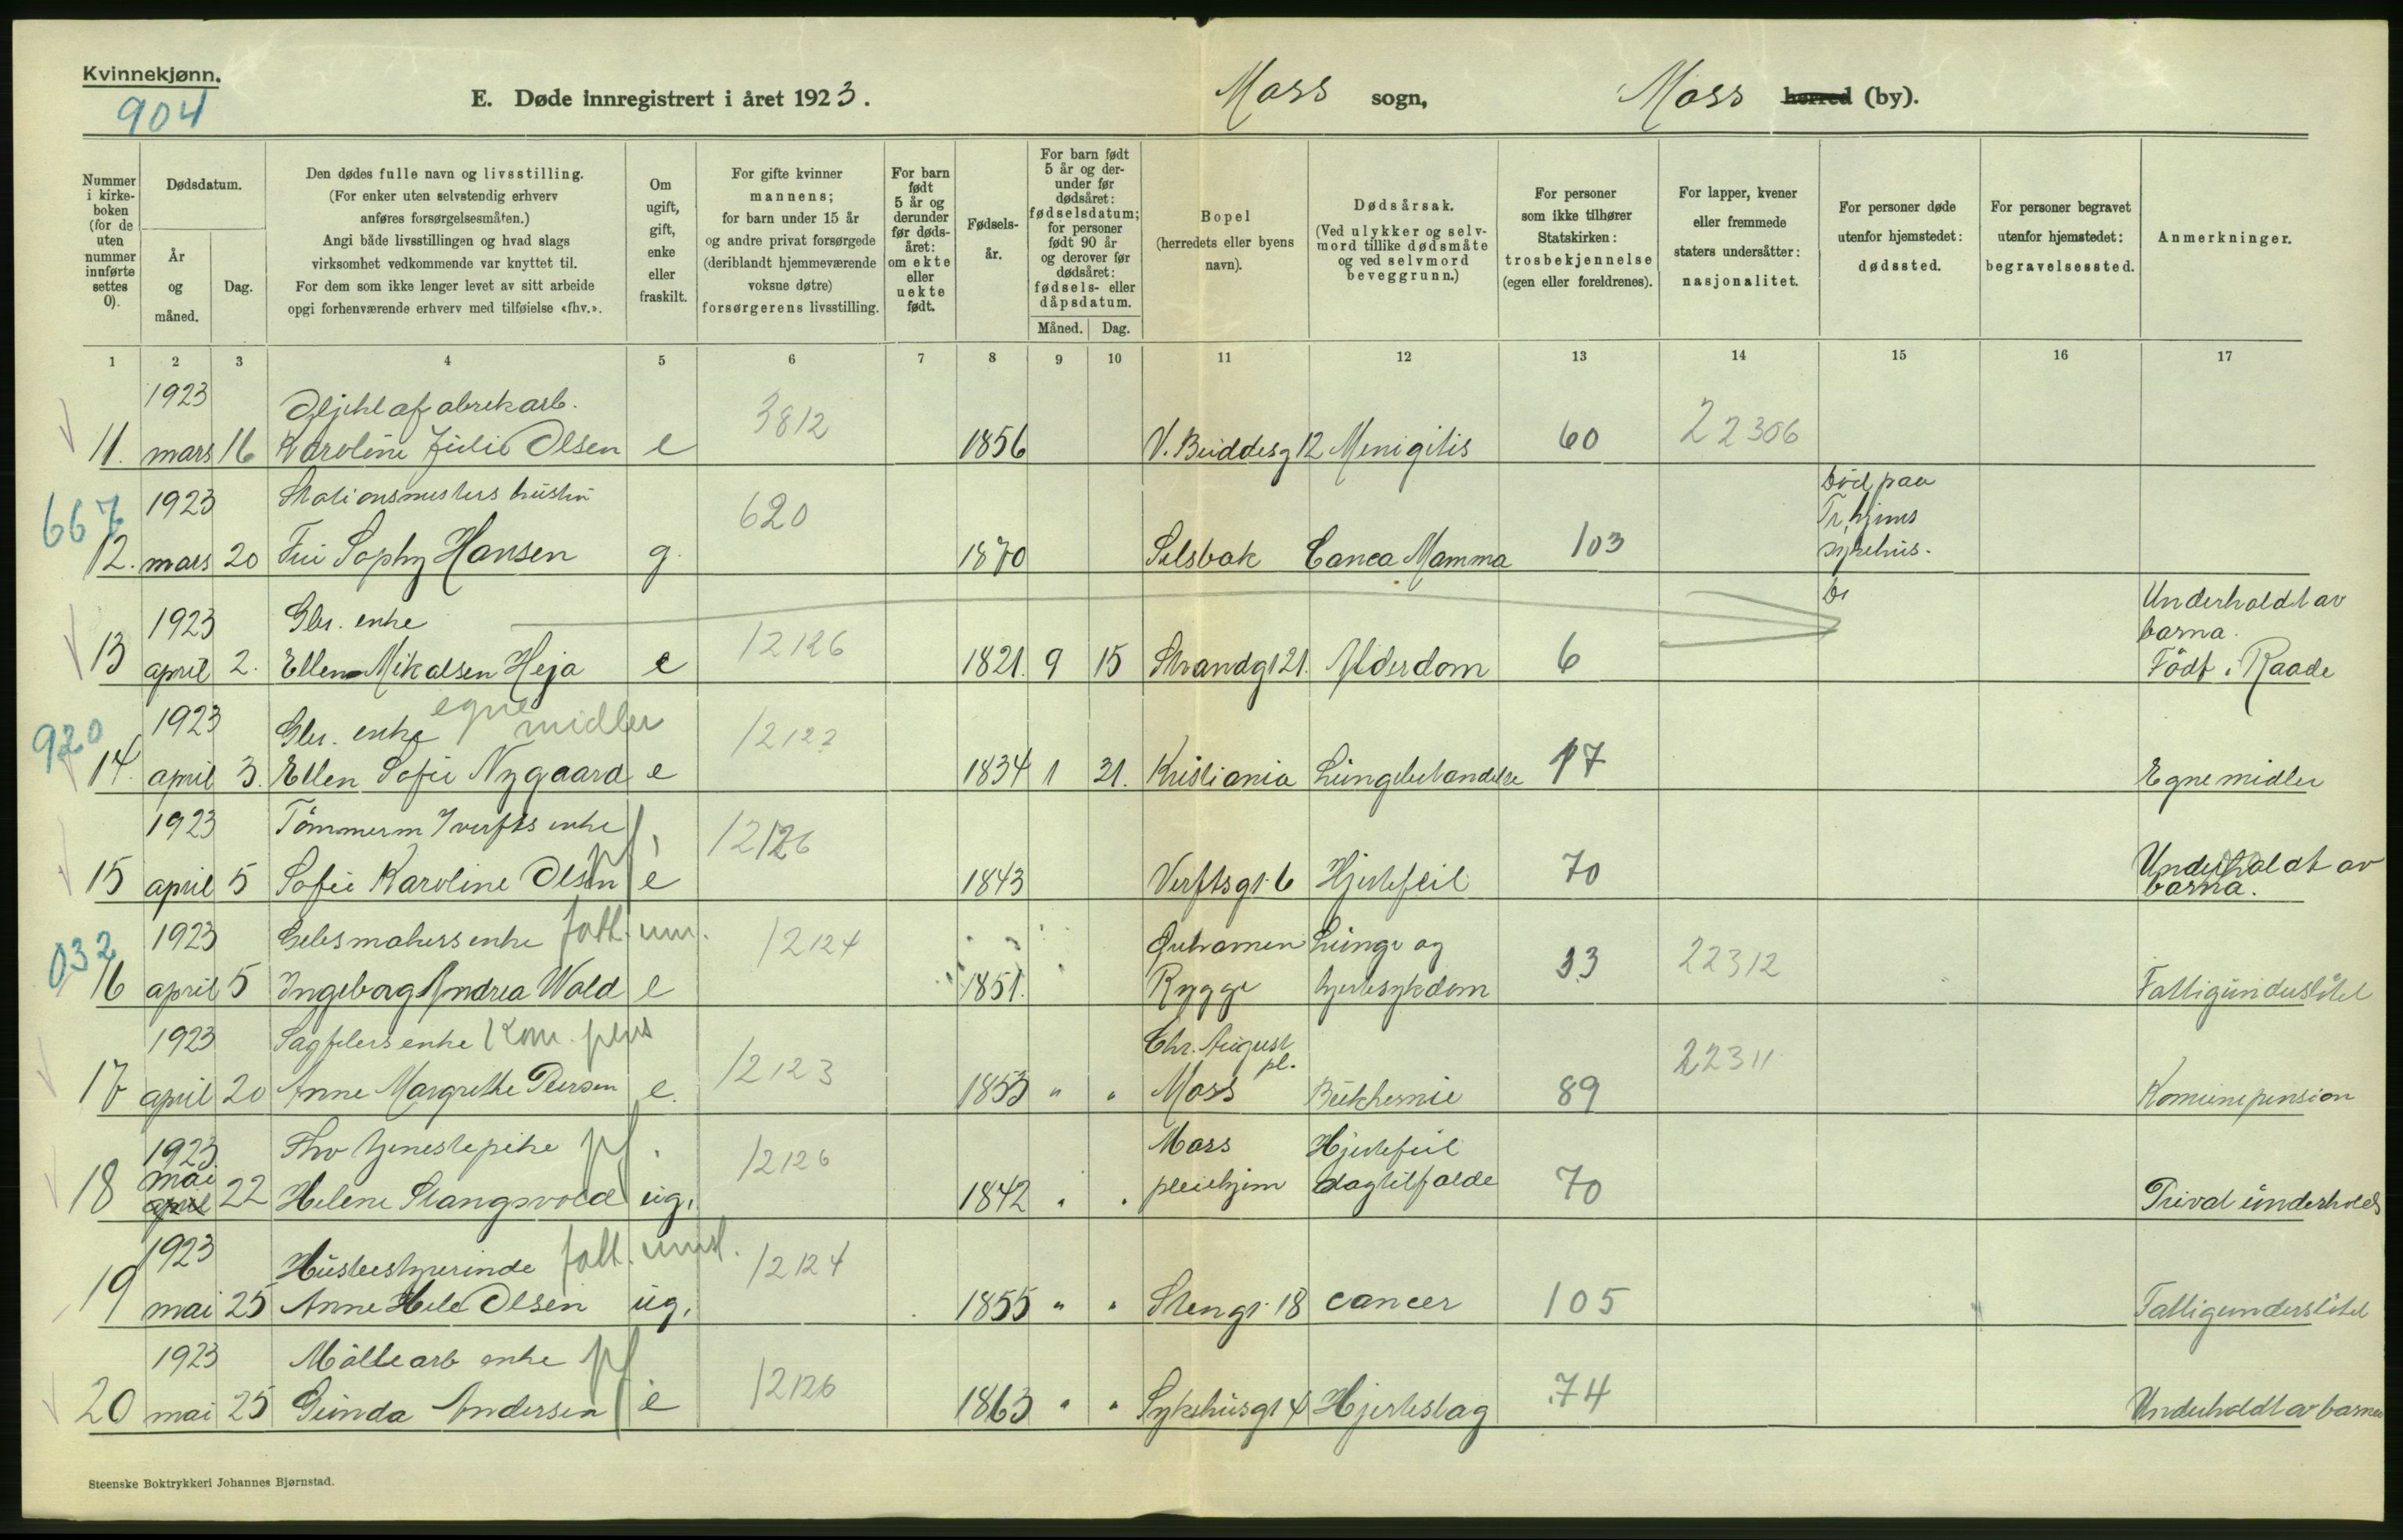 Kvinnekjønn.
904
E. Døde innregistrert i året 1923.
Moss sogn,
Moss herred (by).
Nummer i kirkeboken (for de uten nummer innførte settes 0).
Dødsdatum.
År og måned.
Dag.
Den dødes fulle navn og livsstilling.
(For enker uten selvstendig erhverv anføres forsørgelsesmåten.)
Angi både livsstillingen og hvad slags virksomhet vedkommende var knyttet til.
For dem som ikke lenger levet av sitt arbeide opgi forhenværende erhverv med tilføielse «fhv.».
Om ugift, gift, enke eller fraskilt.
For gifte kvinner mannens; for barn under 15 år og andre privat forsørgede (deriblandt hjemmeværende voksne døtre) forsørgerens livsstilling.
For barn født 5 år og derunder før dødsåret: om ekte eller uekte født.
Fødselsår.
For barn født 5 år og derunder før dødsåret: fødselsdatum; for personer født 90 år og derover før dødsåret: fødsels- eller dåpsdatum.
Måned. Dag.
Bopel (herredets eller byens navn).
Dødsårsak.
(Ved ulykker og selvmord tillike dødsmåte og ved selvmord beveggrunn.)
For personer som ikke tilhører Statskirken: trosbekjennelse (egen eller foreldrenes).
For lapper, kvener eller fremmede staters undersåtter: nasjonalitet.
For personer døde utenfor hjemstedet: dødssted.
For personer begravet utenfor hjemstedet: begravelsessted.
Anmerkninger.
1 2 3 4 5 6 7 8 9 10 11 12 13 14 15 16 17
1923 3812 22306
11. mars 16 Karoline Julie Olsen e 1856 V. Buddesg 12 Menigitis 60
667 1923 Stationsmesters hustru 620 Død paa
Tr.hjems
12. mars 20 Fru Sophy Hansen g. 1870 Selsbak Canca Mamma 103 sykehus.
1923 Gbr. enke 12126 Underholdt av
barna.
13 april 2. Ellen Mikalsen Heja e 1821. 9 15 Strandgt 21. Alderdom 6 Født i Raade
920 1923 Gbr. enke egne midler 12122
14. april 3. Ellen Sofie Nygaard e 1834 1 21. Kristiania Lungebetændelse 17 Egne midler
1923 Tømmerm. Verfts enke pf. 12126
15 april 5 Sofie Karoline Olsen e 1843 Verftsgt. 6 Hjertefeil 70 Underholdt av
barna.
032 1923 enke fatt. un. 12124 Lunge og 22312
16 april 5 Ingeborg Andrea Wold e 1851. Rygge hjertesykdom 33 Fattigunderstøttet
1923 Sagfilers enke Kom. pens 12123 Chr. August pl. 22311
17 april 20 Anne Margrethe Peersen e. 1853 " " Moss 89 Komunepension
1923 Fhv tjenestepike pf. 12126 Moss Hjertefeil
18 mai april 22 Helene Stangsvold ug. 1842 " " pleiehjem slagtilfælde 70 Privat underholdt
1923 Husbestyrerinde fatt. unst. 12124
19 mai 25 Anne Hele Olsen ug. 1855 " " Stengt. 18 cancer 105 Fattigunderstøttet
1923 Möllearb enke pf 12126
20 mai 25 Gunda Andersen e 1863 " " Sykehusgt 4 Hjerteslag 74 Underholdt av barna
Steenske Boktrykkeri Johannes Bjørnstad.